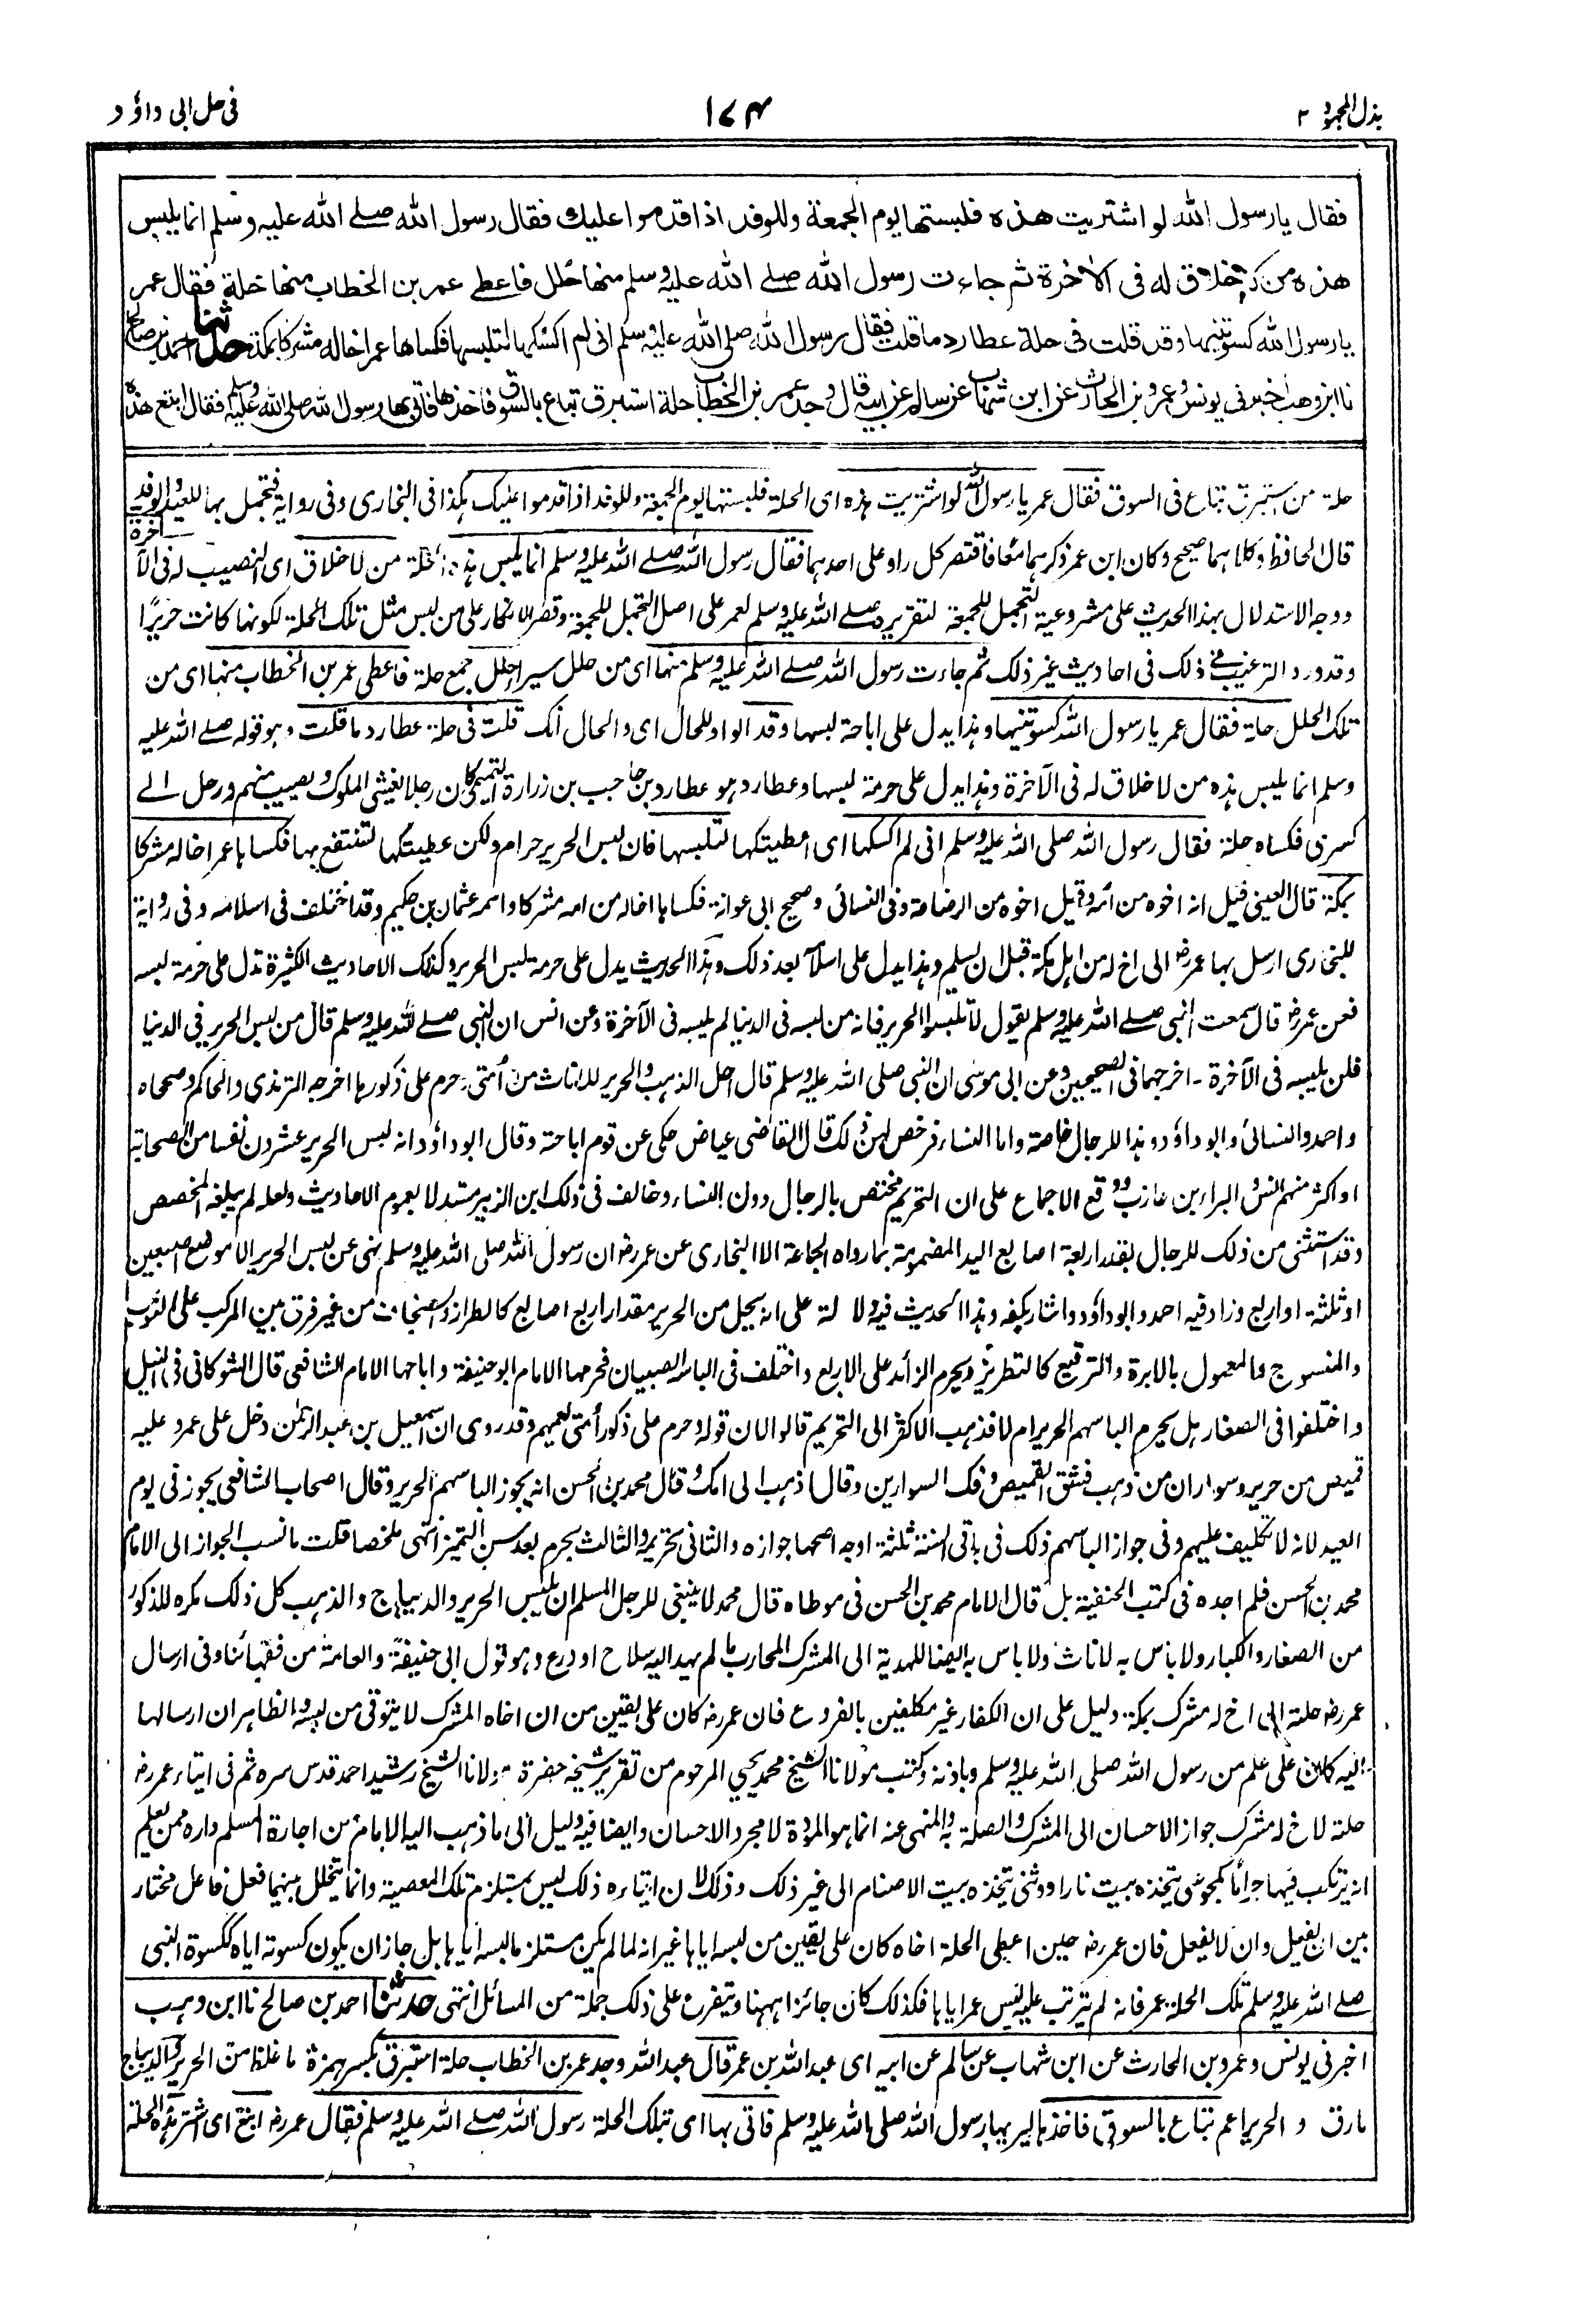 بذل المجهود ٢
١٧٤
في حل ابى داؤد
فقال يا رسول الله لو اشتريت هذه فلبستها يوم الجمعة وللوفد اذا قدموا عليك فقال رسول الله صلے الله عليه وسلم انما يلبس
هذه من لا خلاق له فى الاخرة ثم جاءت رسول الله صلے الله عليه وسلم منها حلل فاعطے عمر بن الخطاب منها حلة فقال عمر
يا رسول الله كسوتنيها وقد قلت فى حلة عطارد ما قلت فقال رسول الله صلى الله عليه وسلم انى لم اكسكها لتلبسها فكساها عمر اخا له مشركا بمكة حدثنا احمد بن صالح
نا ابن وهب اخبرنى يونس وعمرو بن الحارث عن ابن شهاب عن سالم عن ابيه قال وجد عمر بن الخطاب حلة استبرق تباع بالسوق فاخذها فاتى بها رسول الله صلى الله عليه وسلم فقال ابتع هذه
حلة من استبرق تباع فى السوق فقال عمر يا رسول الله لو اشتريت هذه اى الحلة فلبستها يوم الجمعة وللوفد اذا قدموا عليك هكذا فى البخارى وفى رواية فتجمل بها للعيد والوفد
قال الحافظ وكلاهما صحيح وكان ابن عمر ذكرهما معا فاقتصر كل راو على احدهما فقال رسول الله صلے الله عليه وسلم انما يلبس هذه الحلة من لا خلاق اى لا نصيب له فى الآخرة
ووجه الاستدلال بهذا الحديث على مشروعية التجمل للجمعة لتقريره صلے الله عليه وسلم لعمر على اصل التجمل للجمعة وقصر الانكار على من لبس مثل تلك الحلة لكونها كانت حريرًا
وقد ورد الترغيب فى ذلك فى احاديث غير ذلك ثم جاءت رسول الله صلے الله عليه وسلم منها اى من حلل سيراء حلل جمع حلة فاعطى عمر بن الخطاب منها اى من
تلك الحلل حلة فقال عمر يا رسول الله كسوتنيها وهذا يدل على اباحة لبسها وقد الواو للحال اى والحال انك قلت فى حلة عطارد ما قلت وهو قوله صلے الله عليه
وسلم انما يلبس هذه من لا خلاق له فى الآخرة وهذا يدل على حرمة لبسها وعطارد هو عطارد بن حاجب بن زرارة التميمى كان رجلا يغشى الملوك ويصيب منهم ورحل الے
كسرى فكساه حلة فقال رسول الله صلى الله عليه وسلم انى لم اكسكها اى اعطيتكها لتلبسها فان لبس الحرير حرام ولكن عطيتكها لتنتفع بها فكساها عمر اخا له مشركا
بمكة قال العينى قيل انه اخوه من امه وقيل اخوه من الرضاعة وفى النسائى وصحيح ابى عوانة فكساها اخا له من امه مشركا واسمه عثمان بن حكيم وقد اختلف فى اسلامه وفى رواية
للبخارى ارسل بها عمر رضـ الى اخ له من اهل مكة قبل ان يسلم وهذا يدل على اسلامه بعد ذلك وهذا الحديث يدل على حرمة لبس الحرير وكذلك الاحاديث الكثيرة تدل على حرمة لبسه
فعن عمر رضـ قال سمعت النبى صلے الله عليه وسلم يقول لا تلبسوا الحرير فانه من لبسه فى الدنيا لم يلبسه فى الآخرة وعن انس ان النبى صلے الله عليه وسلم قال من لبس الحرير فى الدنيا
فلن يلبسه فى الآخرة - اخرجهما فى الصحيحين وعن ابى موسى ان النبى صلى الله عليه وسلم قال احل الذهب والحرير للاناث من أمتى وحرم على ذكورها اخرجه الترمذى والحاكم وصححاه
واحمد والنسائى وابو داؤد وهذا للرجال خاصة واما النساء فرخص لهن ذلك قال القاضى عياض حكى عن قوم اباحة وقال ابو داؤد انه لبس الحرير عشرون نفسا من الصحابة
او اكثر منهم انس والبراء بن عازب ووقع الاجماع على ان التحريم مختص بالرجال دون النساء وخالف فى ذلك ابن الزبير مستدلا بعموم الاحاديث ولعله لم يبلغه المخصص
وقد استثنى من ذلك للرجال بقدر اربعة اصابع اليد المضمومة بما رواه الجماعة الا البخارى عن عمر رضـ ان رسول الله صلى الله عليه وسلم نهى عن لبس الحرير الا موضع اصبعين
او ثلثة او اربع وزاد فيه احمد وابو داؤد واشار بكفه وهذا الحديث فيه دلالة على انه يحل من الحرير مقدار اربع اصابع كالطراز والسجاف من غير فرق بين المركب على الثوب
والمنسوج والمعمول بالابرة والترقيع كالتطريز ويحرم الزائد على الاربع واختلف فى الباس الصبيان فحرمها الامام ابو حنيفة واباحها الامام الشافعى قال الشوكانى فى النيل
واختلفوا فى الصغار هل يحرم الباسهم الحرير ام لا فذهب الاكثر الى التحريم قالوا لان قوله وحرم على ذكور أمتى يعمهم وقد روى ان اسمعيل بن عبد الرحمن دخل على عمر وعليه
قميص من حرير وسواران من ذهب فشق القميص وفك السوارين وقال اذهب الى امك وقال محمد بن الحسن انه يجوز الباسهم الحرير وقال اصحاب الشافعى يجوز فى يوم
العيد لانه لا تكليف عليهم وفى جواز الباسهم ذلك فى باقى السنة ثلثة اوجه اصحها جوازه والثانى تحريمه والثالث يحرم بعد سن التميز انتهى ملخصا قلت ما نسب الجواز الى الامام
محمد بن الحسن فلم اجده فى كتب الحنفية بل قال الامام محمد بن الحسن فى موطاه قال محمد لا ينبغى للرجل المسلم ان يلبس الحرير والديباج والذهب كل ذلك مكره للذكور
من الصغار والكبار ولا باس به للاناث ولا باس به ايضا للهدية الى المشرك المحارب ما لم يهد اليه سلاح او درع وهو قول ابى حنيفة والعامة من فقهائنا وفى ارسال
عمر رضـ حلة الى اخ له مشرك بمكة دليل على ان الكفار غير مكلفين بالفروع فان عمر رضـ كان على يقين من ان اخاه المشرك لا يتوقى من لبسه والظاهر ان ارسالها
اليه كان على علم من رسول الله صلى الله عليه وسلم وباذنه وكتب مولانا الشيخ محمد يحيى المرحوم من تقرير شيخه حضرة مولانا الشيخ رشيد احمد قدس سره ثم فى ايتاء عمر رضـ
حلة لاخ له مشرك جواز الاحسان الى المشرك والصلة به والمنهى عنه انما هو المودة لا مجرد الاحسان وايضا فيه دليل الى ما ذهب اليه الامام من اجارة المسلم داره ممن يعلم
انه يرتكب فيها حراما كمجوسى يتخذه بيت نار او وثنى يتخذه بيت الاصنام الى غير ذلك وذلك لان ايتاءه ذلك ليس بمستلزم تلك المعصية وانما يتخلل بينهما فعل فاعل مختار
بين ان يفعل وان لا يفعل فان عمر رضـ حين اعطى الحلة اخاه كان على يقين من لبسه اياها غير انه لما لم يكن مستلزما لبسه اياها بل جاز ان يكون كسوته اياه ككسوة النبى
صلے الله عليه وسلم تلك الحلة عمر فانه لم يترتب عليه لبس عمر اياها فكذلك كان جائزا ههنا ويتفرع على ذلك جملة من المسائل انتهى حدثنا احمد بن صالح نا ابن وهب
اخبرنى يونس وعمرو بن الحارث عن ابن شهاب عن سالم عن ابيه اى عبد الله بن عمر قال عبد الله وجد عمر بن الخطاب حلة استبرق بكسر همزة ما غلظ من الحرير والديباج
مارق والحرير اعم تباع بالسوق فاخذها ليريها رسول الله صلى الله عليه وسلم فاتى بها اى بتلك الحلة رسول الله صلے الله عليه وسلم فقال عمر رضـ ابتع اى اشتر هذه الحلة